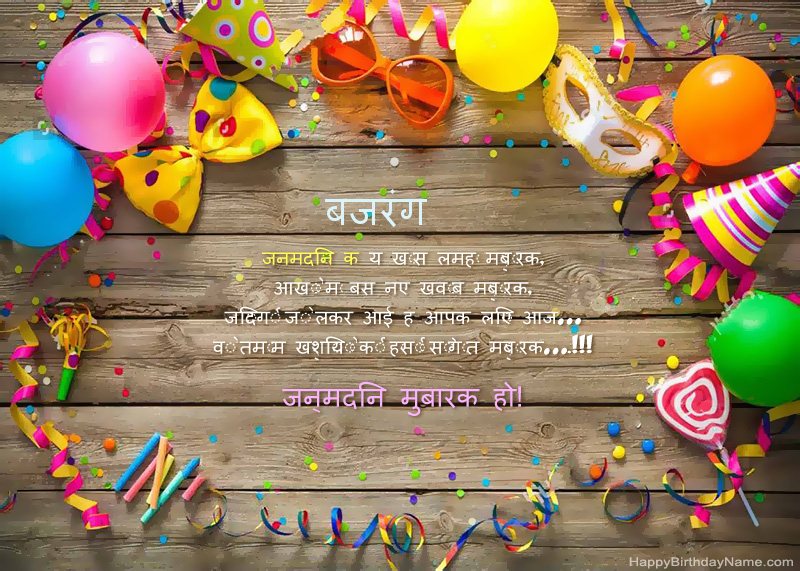 बजरंग
जनमदनि क य खास लमह मबुरक,
आखोम बस नए खवाब मबुरक,
जदिगी जोलकर आई ह आपक लएि आज...
वो तमाम खशयिोकी हसी सागात मबुरक....!!!
जन्मदनि मुबारक हो!
HappyBirthdayName.com